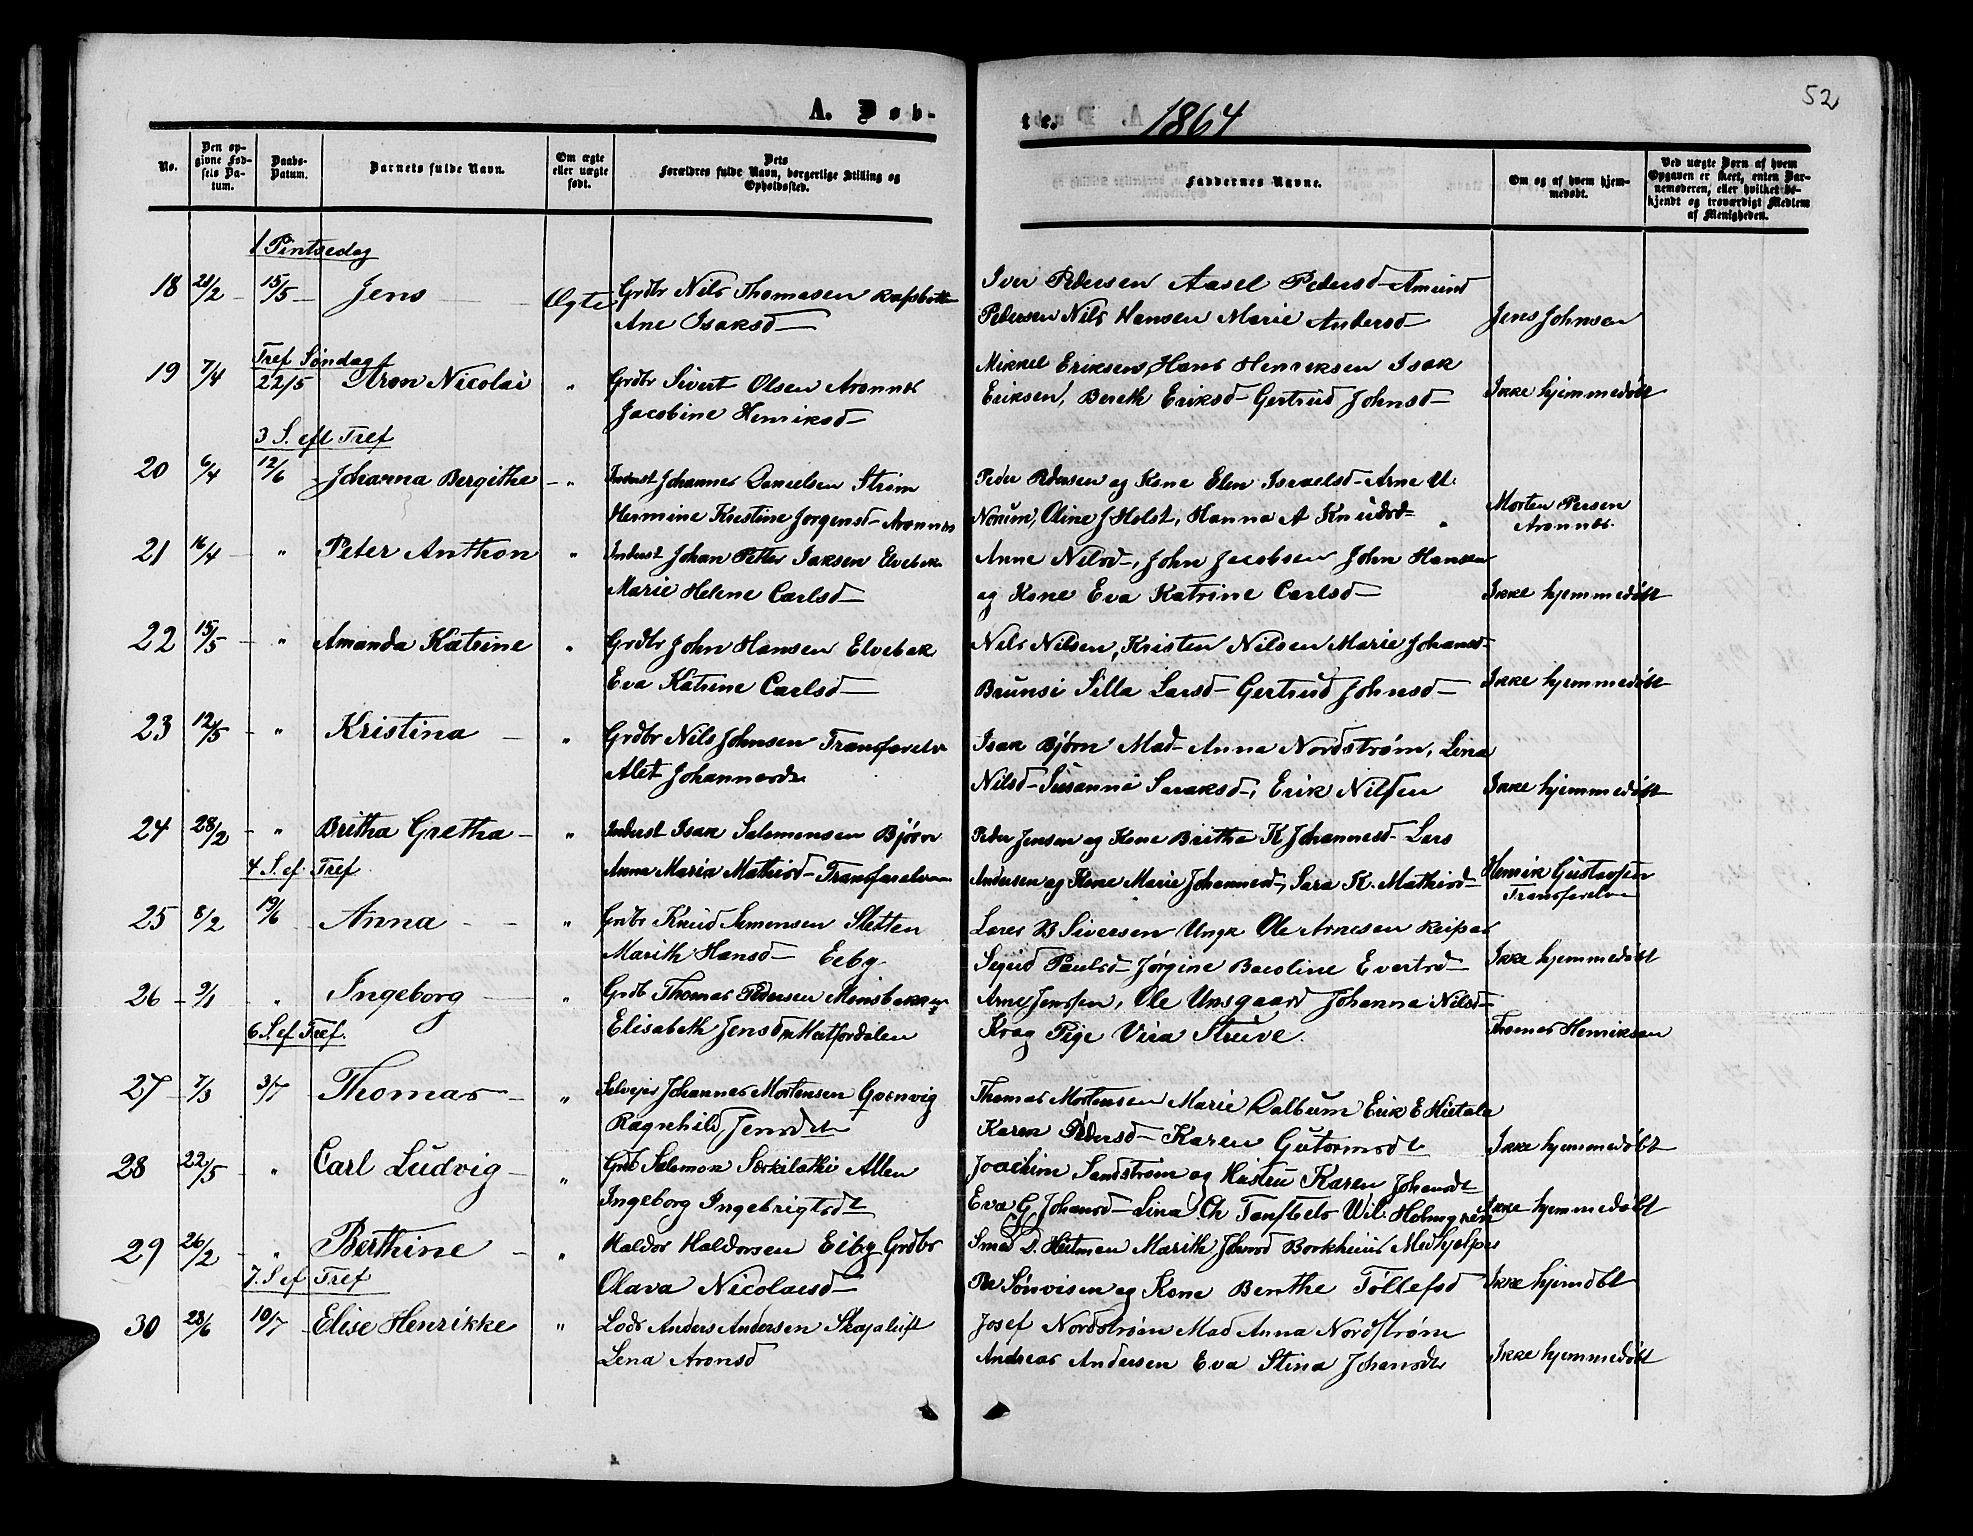 52
A. Døb-
te. 1864
No.
Den op-
givne Fød-
sels Da-
tum.
Daabs-
Datum.
Barnets fulde Navn.
Om ægte
eller uægte
født.
Dets
Forældres fulde Navn, borgerlige Stilling og
Opholdssted.
Faddernes Navne.
Om og af hvem hjem-
medøbt.
Ved uægte Børn af hvem
Opgaven er skeet, enten Bar-
nemoderen, eller hvilket be-
kjendt og troværdigt Medlem
af Menigheden.
1 Pintsedag
18 21/2 15/5 Jens Ægte Grdbr Nils Thomasen Rafsbotn
Ane Isaksd
Iver Pedersen Aasel Pedersd Amund
Pedersen Nils Hansen Marie Andersd Jens Johnsen
Tref Søndag
19 7/4 22/5 Aron Nicolai " Grdbr Sivert Olsen Aronnes
Jacobine Henriksd
Mikkel Eriksen, Hans Henriksen Isak
Eriksen, Bereth Eriksd Gertrud Johnsd Ikke hjemmedøbt
3 S. eft Tref
20 6/4 12/6 Johanna Bergithe " Inderst Johannes Danielsen Strøm
Hermine Kristine Jorgensd Aronnes
Peder Pedersen og Kone Elen Israelsd Arne U.
Norum, Oline J Holst, Hanna A Knudsd Morten Persen
Aronnes.
21 16/4 " Peter Anthon " Inderst Johan Petter Isaksen Elvebak
Marie Helene Carlsd
Anne Nilsd, John Jacobsen John Hansen
og Kone Eva Katrine Carlsd Ikke hjemmedøbt
22 15/5 " Amanda Katrine " Grdbr John Hansen Elvebak
Eva Katrine Carlsd
Nils Nilsen, Kristen Nilsen Marie Johansd
Brunsi Silla Larsd Gertrud Johnsd Ikke hjemmedøbt
23 12/5 " Kristina " Grdbr Nils Johnsen Transfarelv
Alet Johannesdt
Isak Bjørn Mad Anna Nordstrøm, Lina
Nilsd Susanna Isaksd, Erik Nilsen Ikke hjemmedøbt
24 28/2 " Britha Gretha " Inderst Isak Salomonsen Bjørn
Anna Maria Mathisd Transfarelven
Peder Jensen og Kone Britha K Johannesd Lars
Andersen og Kone Marie Johannesd, Sara K. Mathisd Henrik Gustafsen
Transfarelv
4 S. ef Tref
25 8/2 19/6 Anna " Grdbr Knud Simonsen Sletten
Marith Hansd Eiby
Lares B Siversen Ungk Ole Arnesen
Sigrid Paulsd Jørgine Baroline Evertsd Ikke hjemmedøbt
26 9/1 " Ingeborg " Grdb Thomas Pedersen
Elisabeth Jensd
Arne Jenssen, Ole Unsgaard Johanna Nilsd
Krag Pige Vira Struve. Thomas Henriksen
6 S. ef Tref.
27 7/3 3/7 Thomas " Selvejer Johannes Mortensen
Ragnhild Jensdt
Thomas Mortensen Marie Dalbum Erik E Hietala
Karen Pedersd Karen Gutormsdt Ikke hjemmedøbt
28 22/5 " Carl Ludvig " Grdb Salomon Særkilathi Alten
Ingeborg Ingebrigtsdt
Joachim Sandstrøm og Hustru Karen Johansdt
Eva G. Johansd Lina Ch Wil. Holmgren Ikke hjemmedøbt
29 26/2 " Berthine " Haldor Haldorsen Eiby Grdbr
Olava Nicolaisd
Smed D. Heitman Marith Johnsd Borkheim Medhjelper
Per Sønvisen og Kone Berthe Tollefsd Ikke hjemdøbt
7. S ef Tref
30 28/6 10/7 Elise Henrikke " Lods Anders Andersen Skojaluft
Lena Aronsd
Josef Nordstrøm Mad Anna Nordstrøm
Andreas Andersen Eva Stina Johansdt Ikke hjemmedøbt